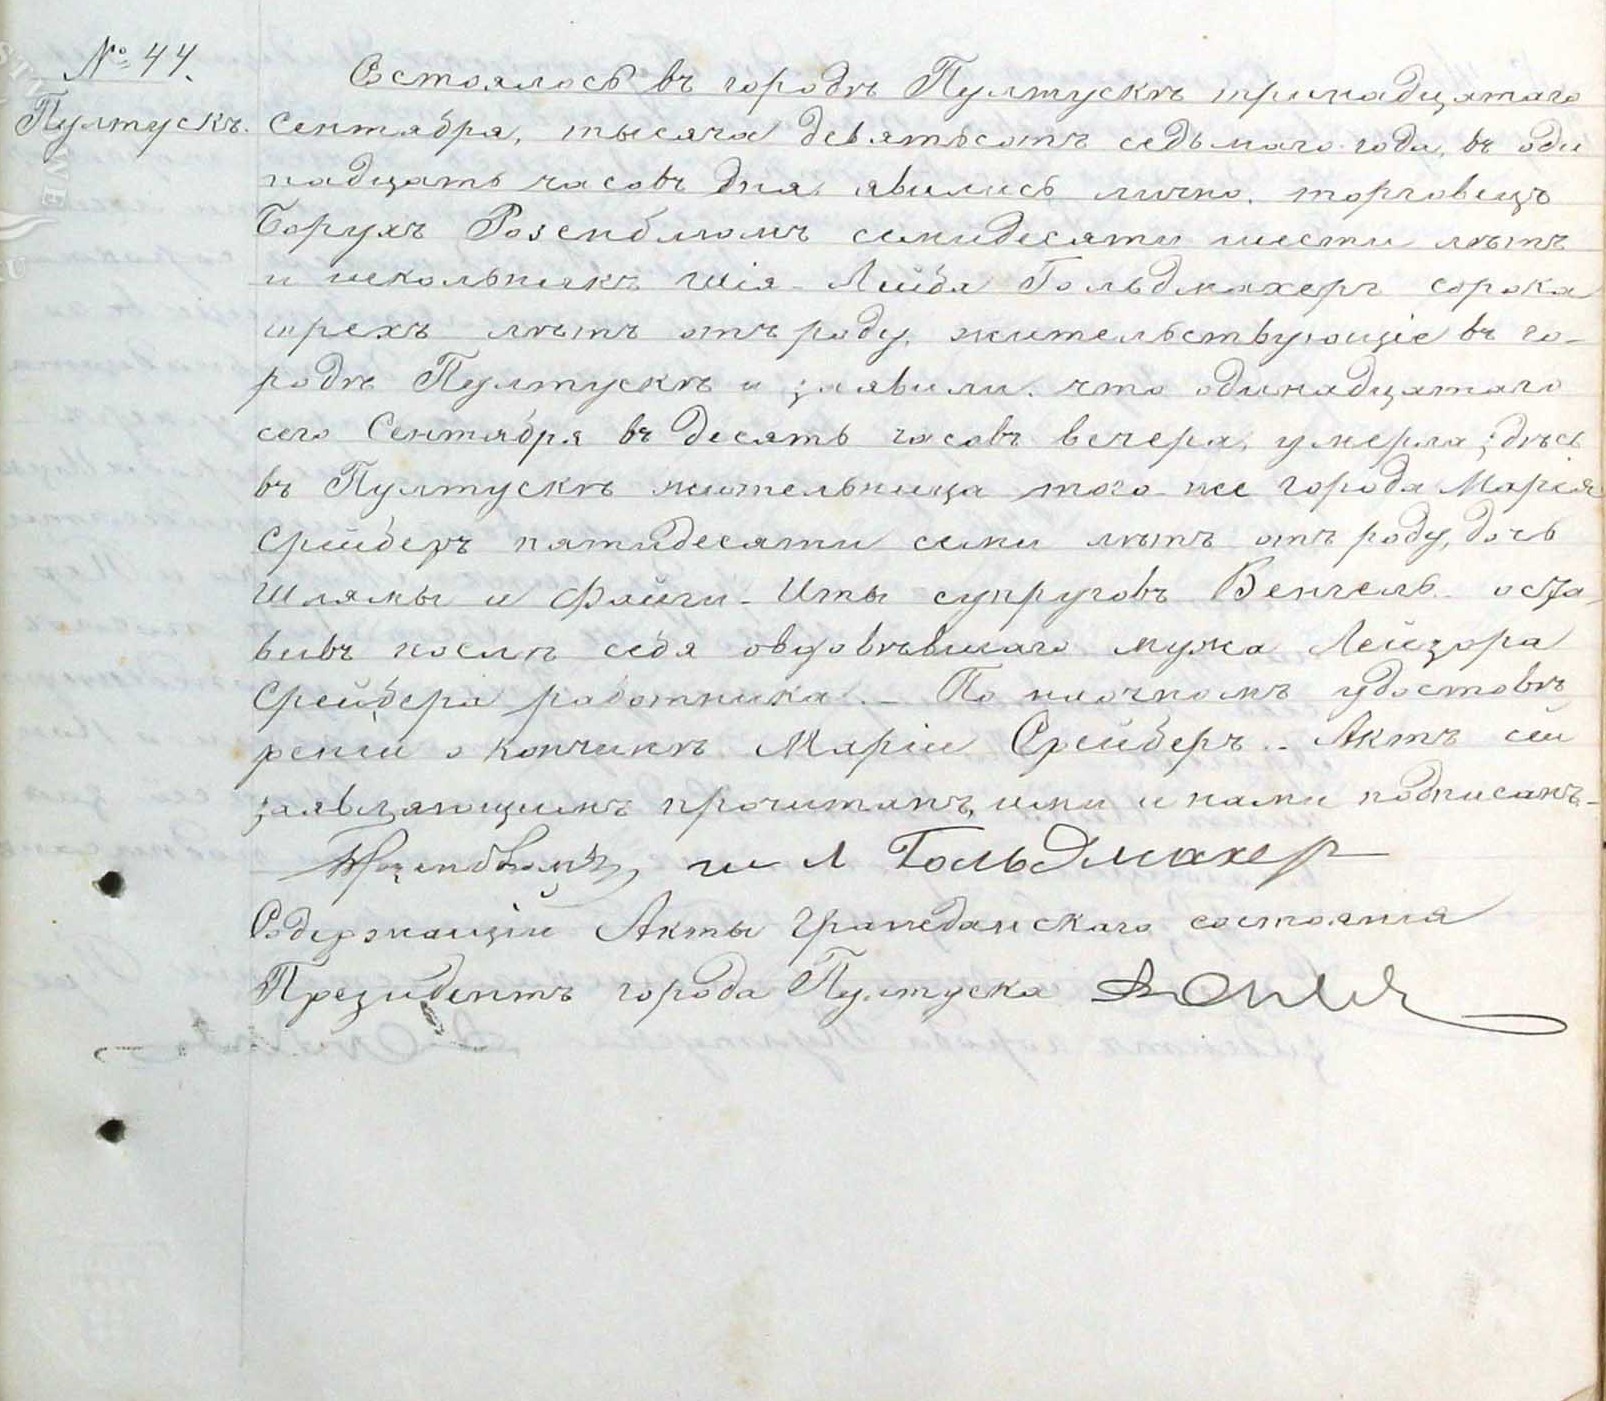 № 44.
Пултускъ.
Состоялось въ городѣ Пултускѣ тринадцатаго
Сентября, тысяча девятьсотъ седьмаго года, въ оди
надцать часовъ дня явились лично, торговецъ
Борухъ Розенблюмъ семидесяти шести лѣтъ
и школьникъ Шія-Лейба Гольдмахеръ сорока
трехъ лѣтъ отъ роду, жительствующіе въ го-
родѣ Пултускѣ и заявили, что одинадцатаго
сего Сентября въ десять часовъ вечера, умерла здѣсь
въ Пултускѣ жительница того-же города Марія
Срейберъ пятидесяти семи лѣтъ отъ роду, дочь
Шлямы и Файги-Иты супруговъ Венгель оста-
вивъ послѣ себя овдовѣвшаго мужа Лейзора
Срейбера работника. - По наочномъ удостовѣ
реніи о кончинѣ Маріи Срейберъ. - Актъ сей
заявляющимъ прочитанъ, ими и нами подписанъ. -
Розенблюмъ, Ш Л Гольдмахер
Содержащій Акты Гражданскаго состоянія
Президентъ города Пултуска